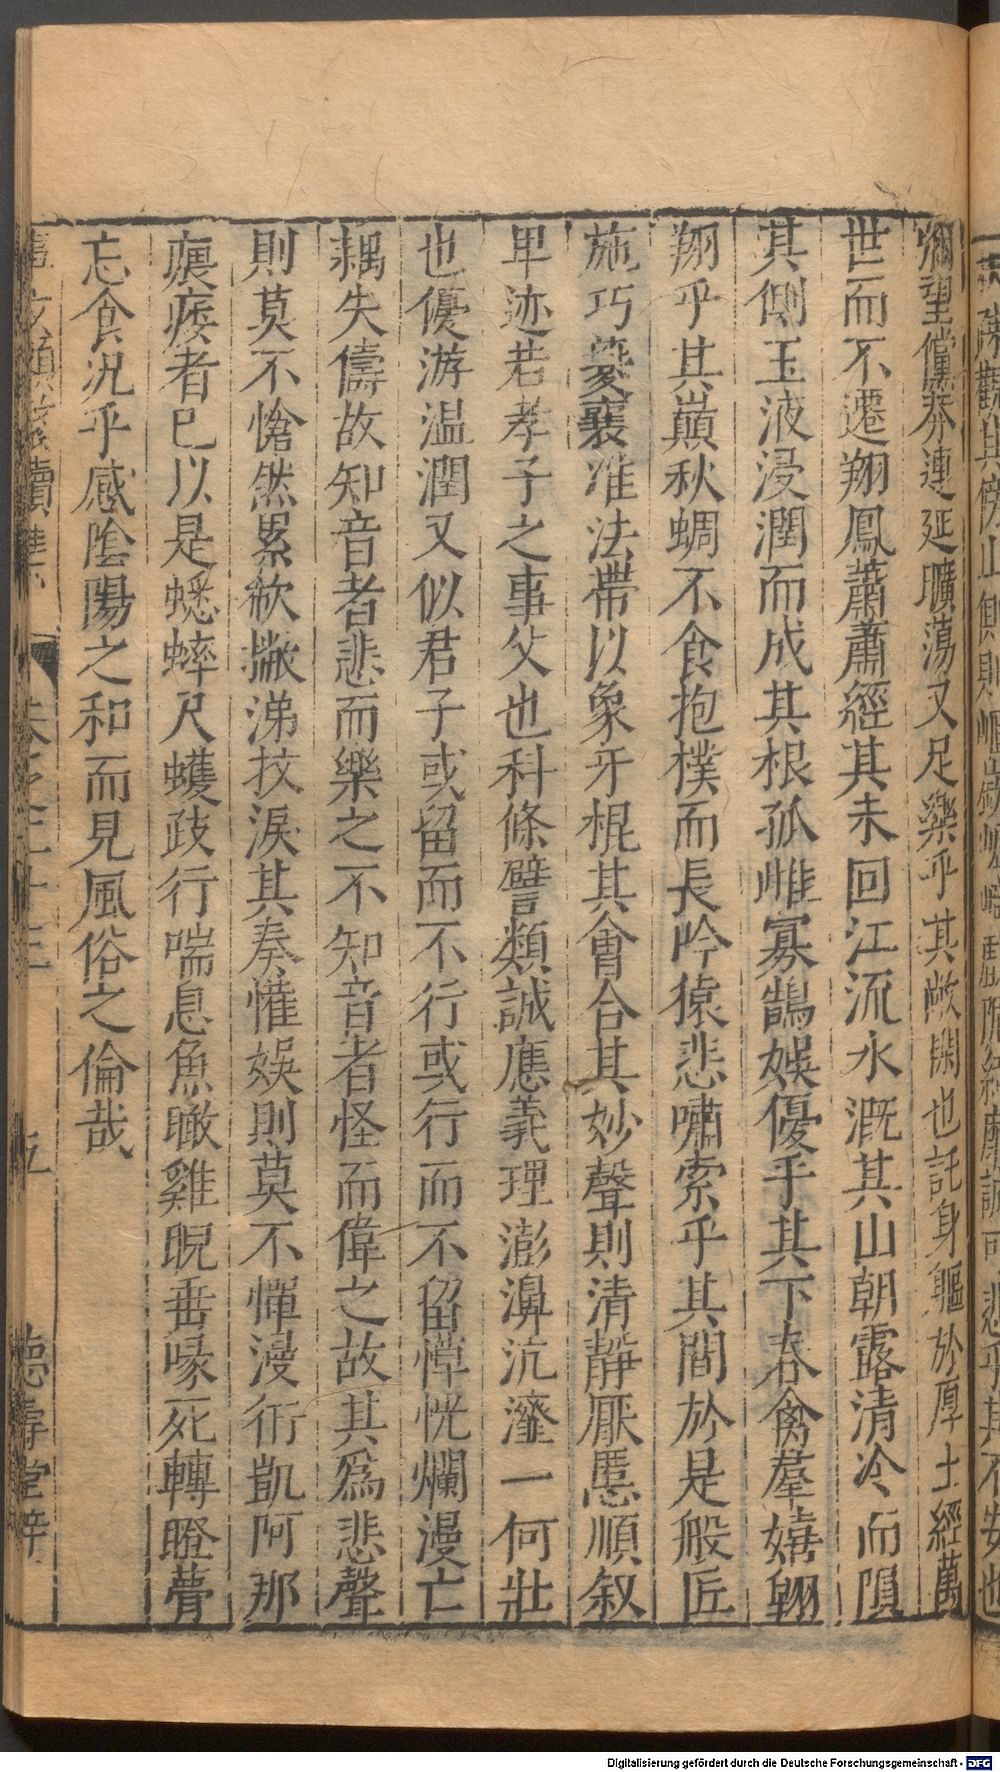 彌望儻莽連延曠蕩又足樂乎其敞閑也託身軀於厚土經萬
世而不遷翔鳳蕭蕭經其末回江流水溉其山朝露清冷而隕
其側玉液浸潤而成其根孤雌寡鵠娛優乎其下春禽羣嬉翱
翔乎其巔秋蜩不食抱樸而長吟猿悲嘯索乎其間於是般匠
施巧夔襄准法帶以象牙棍其會合其妙聲則清靜厭㥷順叙
卑迹若孝子之事父也科條譬類誠應義理澎濞沆瀣一何壯
也優游温潤又似君子或留而不行或行而不留愺恍爛漫亡
耦失儔故知音者悲而樂之不知音者怪而偉之故其爲悲聲
則莫不愴然累欷撇涕抆淚其奏懽娛則莫不憚漫衍凱阿那
腲痿者已以是蟋蟀尺蠖歧行喘息魚瞰雞睨垂喙死轉瞪瞢
忘食況乎感陰陽之和而見風俗之倫哉
卷之三十三
五
德壽堂梓
Digitalisierung gefördert durch die Deutsche Forschungsgemeinschaft - DFG